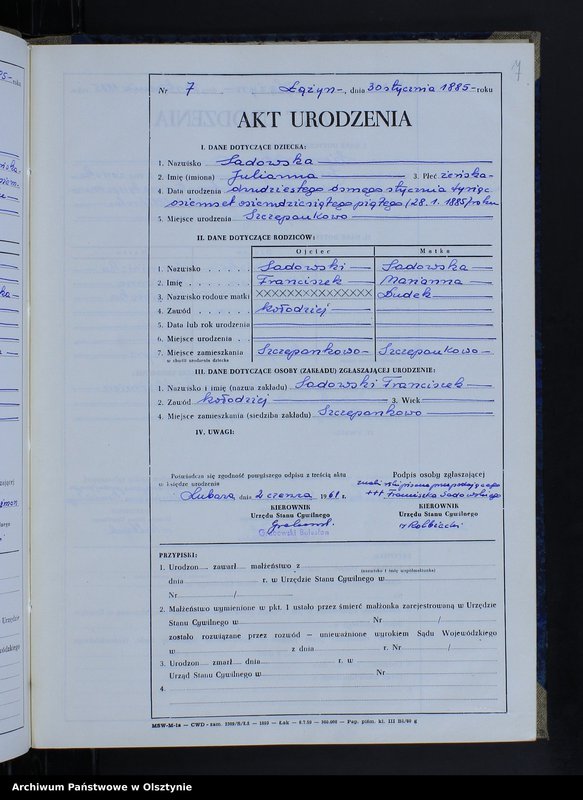 7
Nr 7 Łążyn –, dnia 30 stycznia 1885 – roku
AKT URODZENIA
I. DANE DOTYCZĄCE DZIECKA:
1. Nazwisko Sadowska
2. Imię (imiona) Julianna 3. Płeć żeńska -
4. Data urodzenia dwudziestego ósmego stycznia tysiąc
osiemset osiemdziesiątego piątego /28.1.1885/ roku
5. Miejsce urodzenia Szczepankowo
II. DANE DOTYCZĄCE RODZICÓW:
Ojciec Matka
1. Nazwisko Sadowski Sadowska
2. Imię Franciszek Marianna
3. Nazwisko rodowe matki XXXXXXXXXXXXXX Dudek
4. Zawód kołodziej
5. Data lub rok urodzenia
6. Miejsce urodzenia
7. Miejsce zamieszkania Szczepankowo Szczepankowo
w chwili urodzenia dziecka
III. DANE DOTYCZĄCE OSOBY (ZAKŁADU) ZGŁASZAJĄCEJ URODZENIE:
1. Nazwisko i imię (nazwa zakładu) Sadowski Franciszek
2. Zawód kołodziej 3. Wiek
4. Miejsce zamieszkania (siedziba zakładu) Szczepankowo
IV. UWAGI:
Poświadcza się zgodność powyższego odpisu z treścią aktu
w księdze urodzenia
Podpis osoby zgłaszającej
+++ Franciszka Sadowskiego
dnia 2 czerwca 1961 r.
KIEROWNIK
Urzędu Stanu Cywilnego
Grabowski Bolesław
KIEROWNIK
Urzędu Stanu Cywilnego
PRZYPISKI:
1. Urodzon zawarł małżeństwo z
(nazwisko i imię współmałżonka)
dnia r. w Urzędzie Stanu Cywilnego w
Nr /
2. Małżeństwo wymienione w pkt. 1 ustało przez śmierć małżonka zarejestrowaną w Urzędzie
Stanu Cywilnego w Nr /
zostało rozwiązane przez rozwód – unieważnione wyrokiem Sądu Wojewódzkiego
w z dnia r. Nr /
3. Urodzon zmarł dnia r. w
Urząd Stanu Cywilnego w Nr
4.
Archiwum Państwowe w Olsztynie